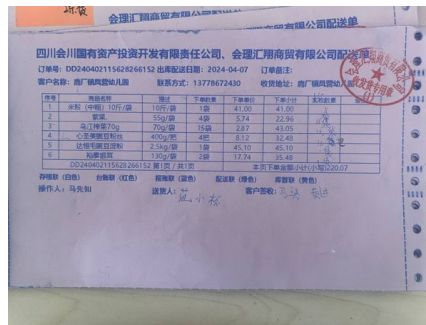 会理汇翔商贸有限公司配送单
四川会川国有资产投资开发有限责任公司、会理汇翔商贸有限公司配送单
订单号: DD2404021156282661​52 出库配送日期: 2024-04-07 订单备注:
客户名称: 鹿厂镇凤营幼儿园 联系方式: 13778672430 收货地址: 鹿厂镇凤营幼儿园
序号 商品名称 描述 下单数量 下单单价 下单小计 实拍数量
1 米粉 (中粗) 10斤/袋 10斤/袋 1袋 41.00 41.00
2 紫菜 55g/袋 4袋 5.74 22.96
3 乌江榨菜70g 70g/袋 15袋 2.87 43.05
4 400g/袋 4把 8.12 32.48
5 2.5kg/袋 1袋 45.10 45.10
6 130g/袋 2袋 17.74 35.48
DD240402115628266152 第1页 / 共1页 本页下单金额小计(小写)220.07
存根联 (白色) 台账联 (红色) 报账联 (蓝色) 配送联 (绿色) 库管联 (黄色)
操作人: 马先知 送货人: 客户签收: